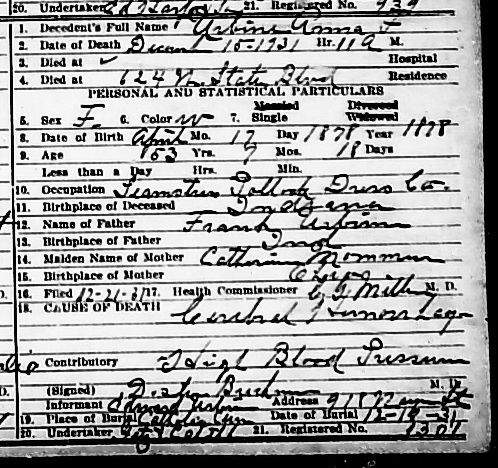 20. Undertaker 21. Registered No. 939
1. Decedent's Full Name Urbine Anna F
2. Date of Death Decem 15-1931 Hr. 11 A M.
3. Died at Hospital
4. Died at 624 N. State Blvd Residence
PERSONAL AND STATISTICAL PARTICULARS
Married Divorced
5. Sex F. 6. Color W 7. Single Widowed
8. Date of Birth April Mo. 17 Day 1878 Year 1878
9. Age 53 Yrs. 7 Mos. 18 Days
Less than a Day Hrs. Min.
10. Occupation Seamstress Pollock Dress Co.
11. Birthplace of Deceased Indiana
12. Name of Father Frank Urbine
13. Birthplace of Father Ind
14. Maiden Name of Mother Catherine
15. Birthplace of Mother
16. Filed 12-21-31 17. Health Commissioner M. D.
18. CAUSE OF DEATH Cerebral Hemorrhage
Contributory High Blood Pressure
(Signed) M. D.
Informant Edward Urbine Address 918 St
19. Place of Burial Catholic Cem Date of Burial 12-18-31
20. Undertaker 21. Registered No. 1307